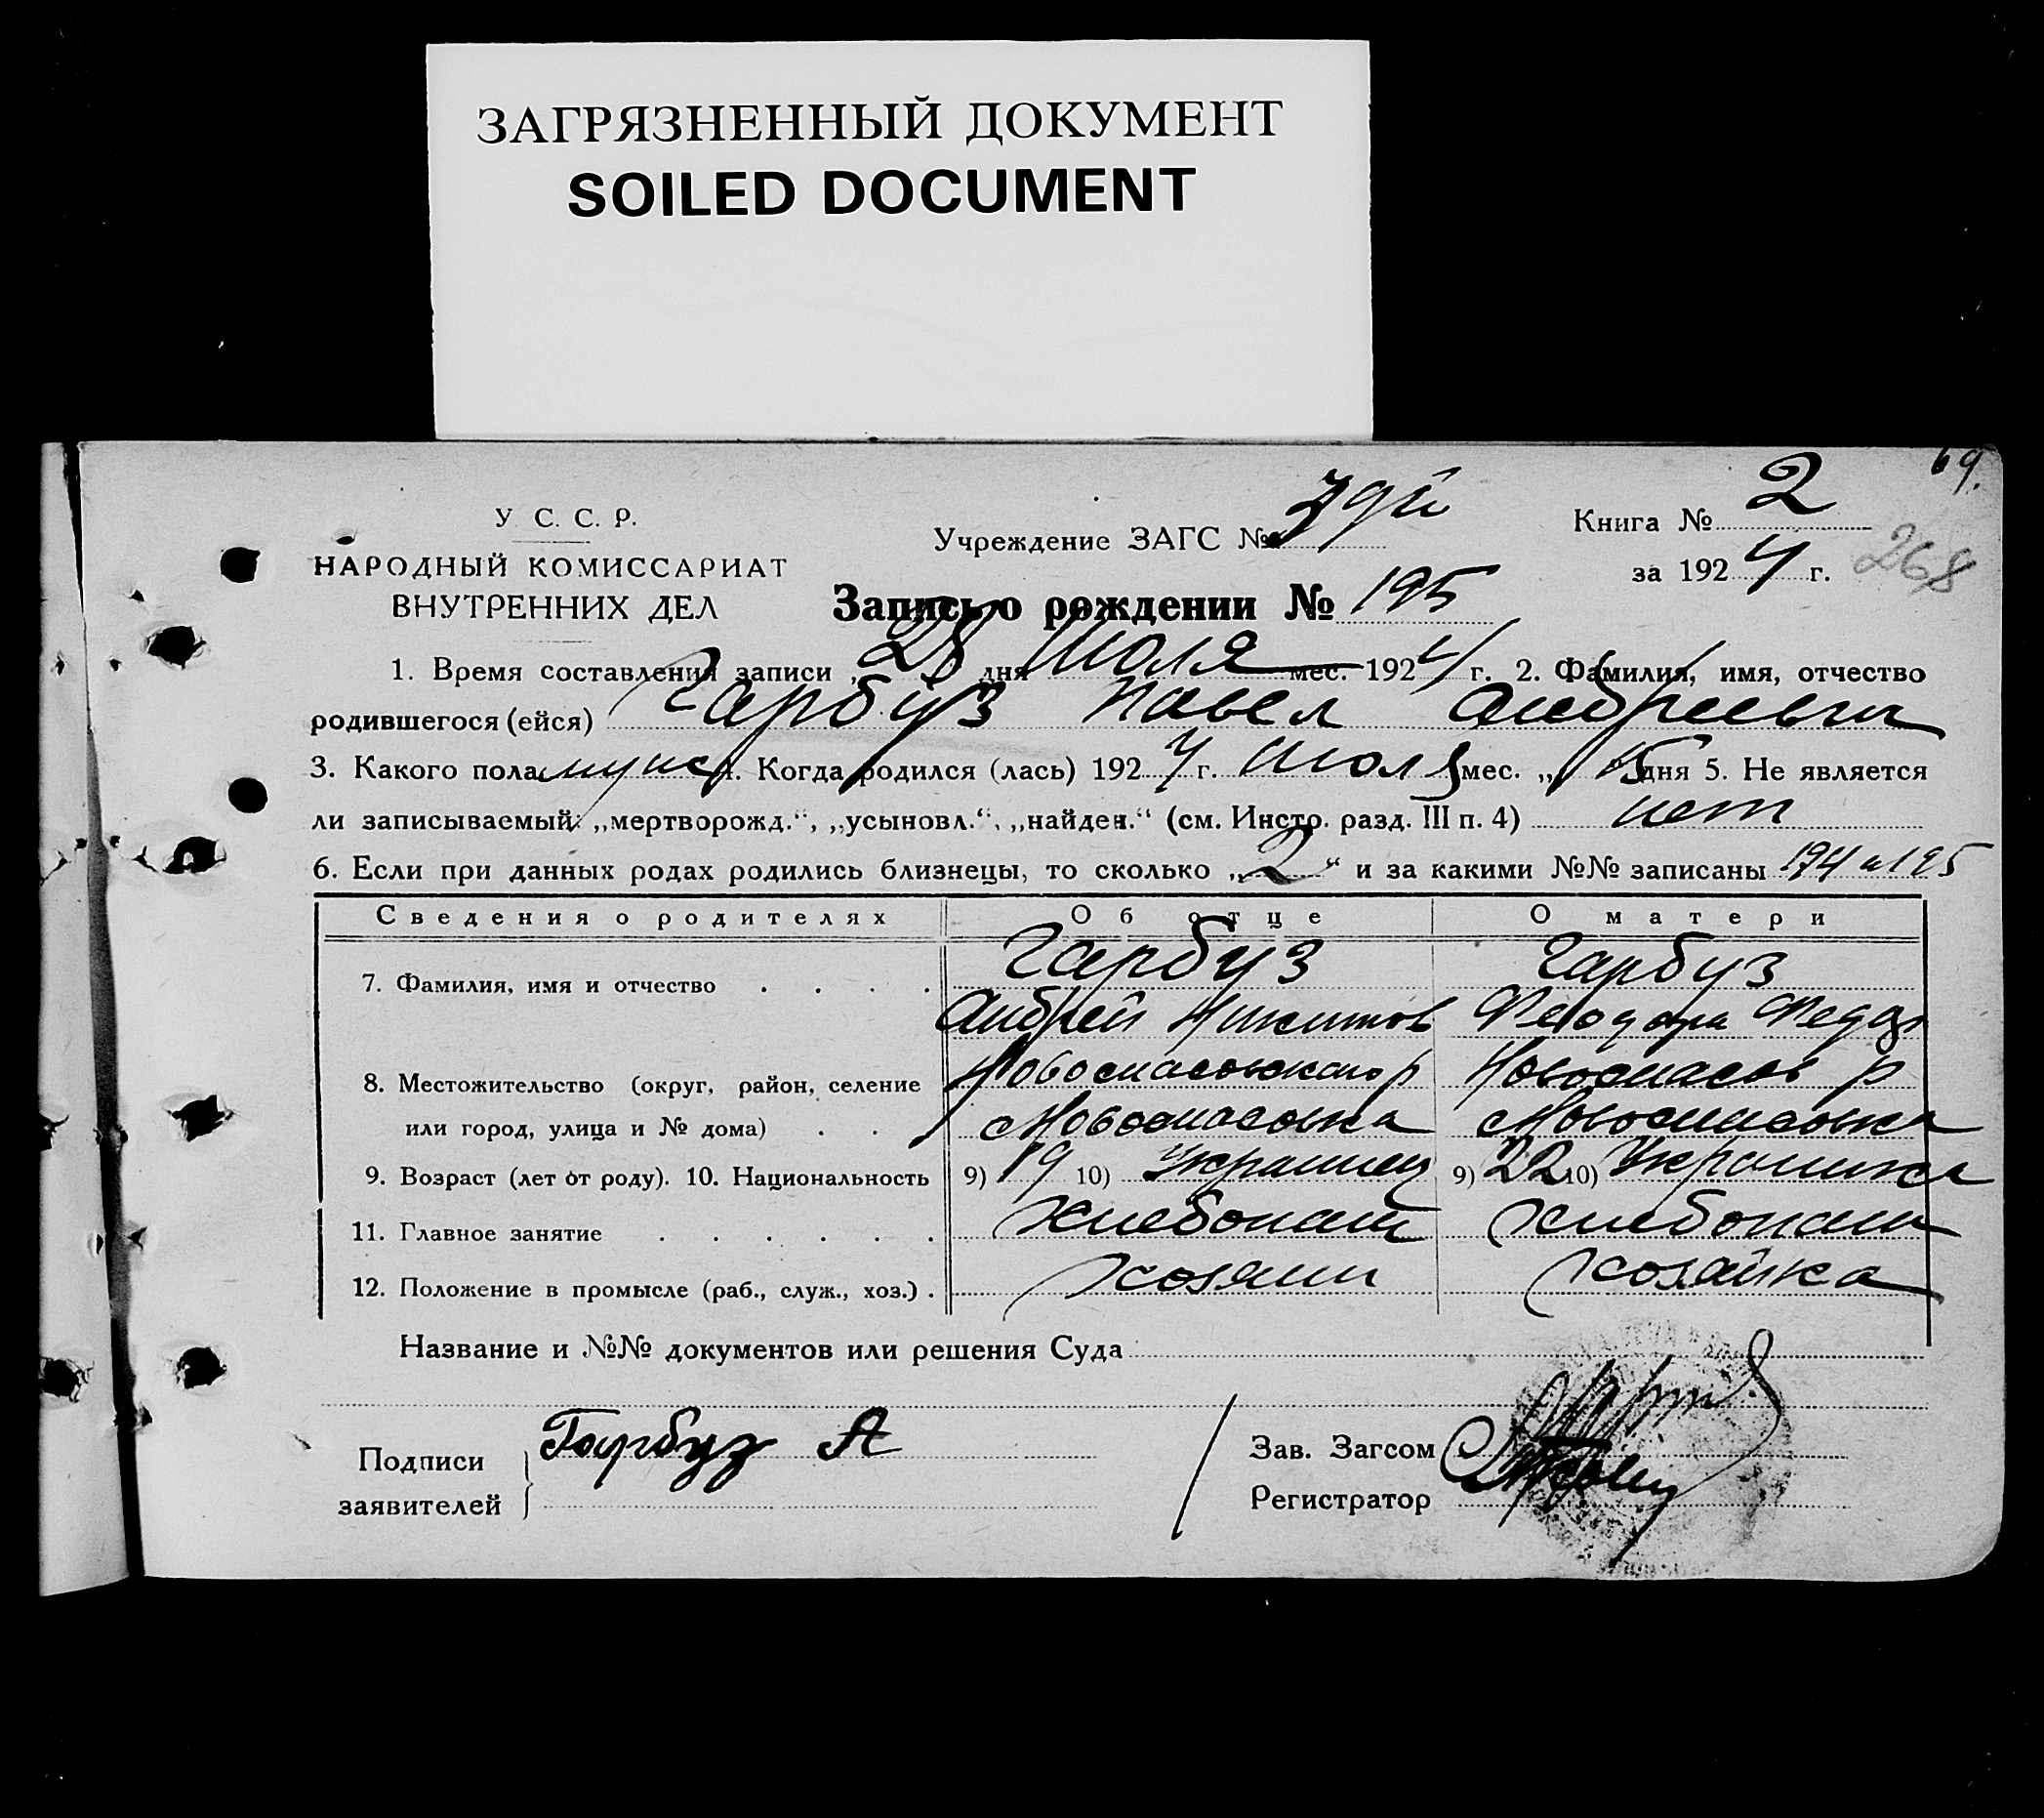 ЗАГРЯЗНЕННЫЙ ДОКУМЕНТ
SOILED DOCUMENT
69.
У С. С. Р.
НАРОДНЫЙ КОМИССАРИАТ
ВНУТРЕННИХ ДЕЛ
Учреждение ЗАГС №
Книга № 2
за 1924 г. 268
Запись о рождении № 195
1. Время составления записи „28 дня Июля мес. 1924 г. 2. Фамилия, имя, отчество
родившегося (ейся) Гарбуз Павел Андреевич
3. Какого пола муж 4. Когда родился (лась) 1924 г. Июля мес. „15 дня 5. Не является
ли записываемый: „мертворожд.“, „усыновл.“, „найден.“ (см. Инстр. разд. III п. 4) нет
6. Если при данных родах родились близнецы, то сколько „2“ и за какими №№ записаны 194 и 195
Сведения о родителях Об отце О матери
Гарбуз Гарбуз
7. Фамилия, имя и отчество
Андрей Никитов Феодора Федор
8. Местожительство (округ, район, селение Новоспасовского р Новоспасов р
или город, улица и № дома) Новоспасовка Новоспасовка
9. Возраст (лет от роду). 10. Национальность 9) 19 10) Украинец 9) 22 10) Украинка
11. Главное занятие Хлебопаш Хлебопаш
12. Положение в промысле (раб., служ., хоз.) Хозяин Хозяйка
Название и №№ документов или решения Суда
Подписи
заявителей
Гарбуз А
Зав. Загсом
Регистратор